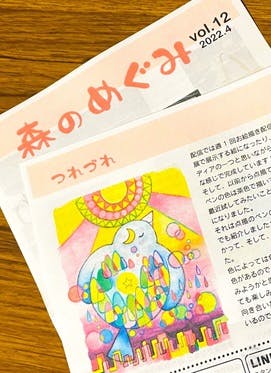 森のめぐみ
vol.12
2022.4
つれづれ
配信では週1回お絵描き配信
展で展示する絵になったり、
ディアの一つと思いながら
な感じで完成しています
そして、以前から点描で
ペンの色は茶色で描い
最近試してみたいこ
になりました。
それは点描のペン
でも紹介しました
かって、そして、
色によっては
色があるので
みようかと
ても楽しみ
向き合いな
いるので